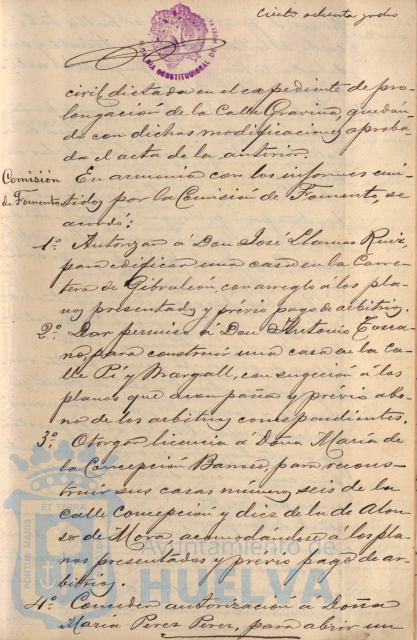 Ciento ochenta y ocho
ALCALDIA CONSTITUCIONAL DE
civil dictada en el expediente de pro-
longación de la Calle Gravina, quedán-
do con dichas modificaciones aproba-
da el acta de la anterior.
Comisión
de Fomento
En armonía con los informes emi-
tidos por la Comisión de Fomento, se
acordó:
1º. Autorizar á Don José Llamas Ruiz,
para edificar una casa en la Carre-
tera de Gibraleón, con arreglo á los pla-
nos presentados y prévio pago de arbitrios.
2º. Dar permiso á Don Antonio Tosca-
no, para construir una casa en la Ca-
lle Pí y Margall, con sugeción á los
planos que acompaña y prévio abo-
no de los arbitrios correspondientes.
3º. Otorgar licencia á Doña María de
la Concepción Barroso, para recons-
truir sus casas número seis de la
calle Concepción y diez de la de Alon-
so de Mora, acomodándose á los pla-
nos presentados y previo pago de ar-
bitrios.
4º. Conceder autorización á Doña
María Perez Perez, para abrir un
PORTUS MARIS ET TERRÆ
Ayuntamiento de
HUELVA